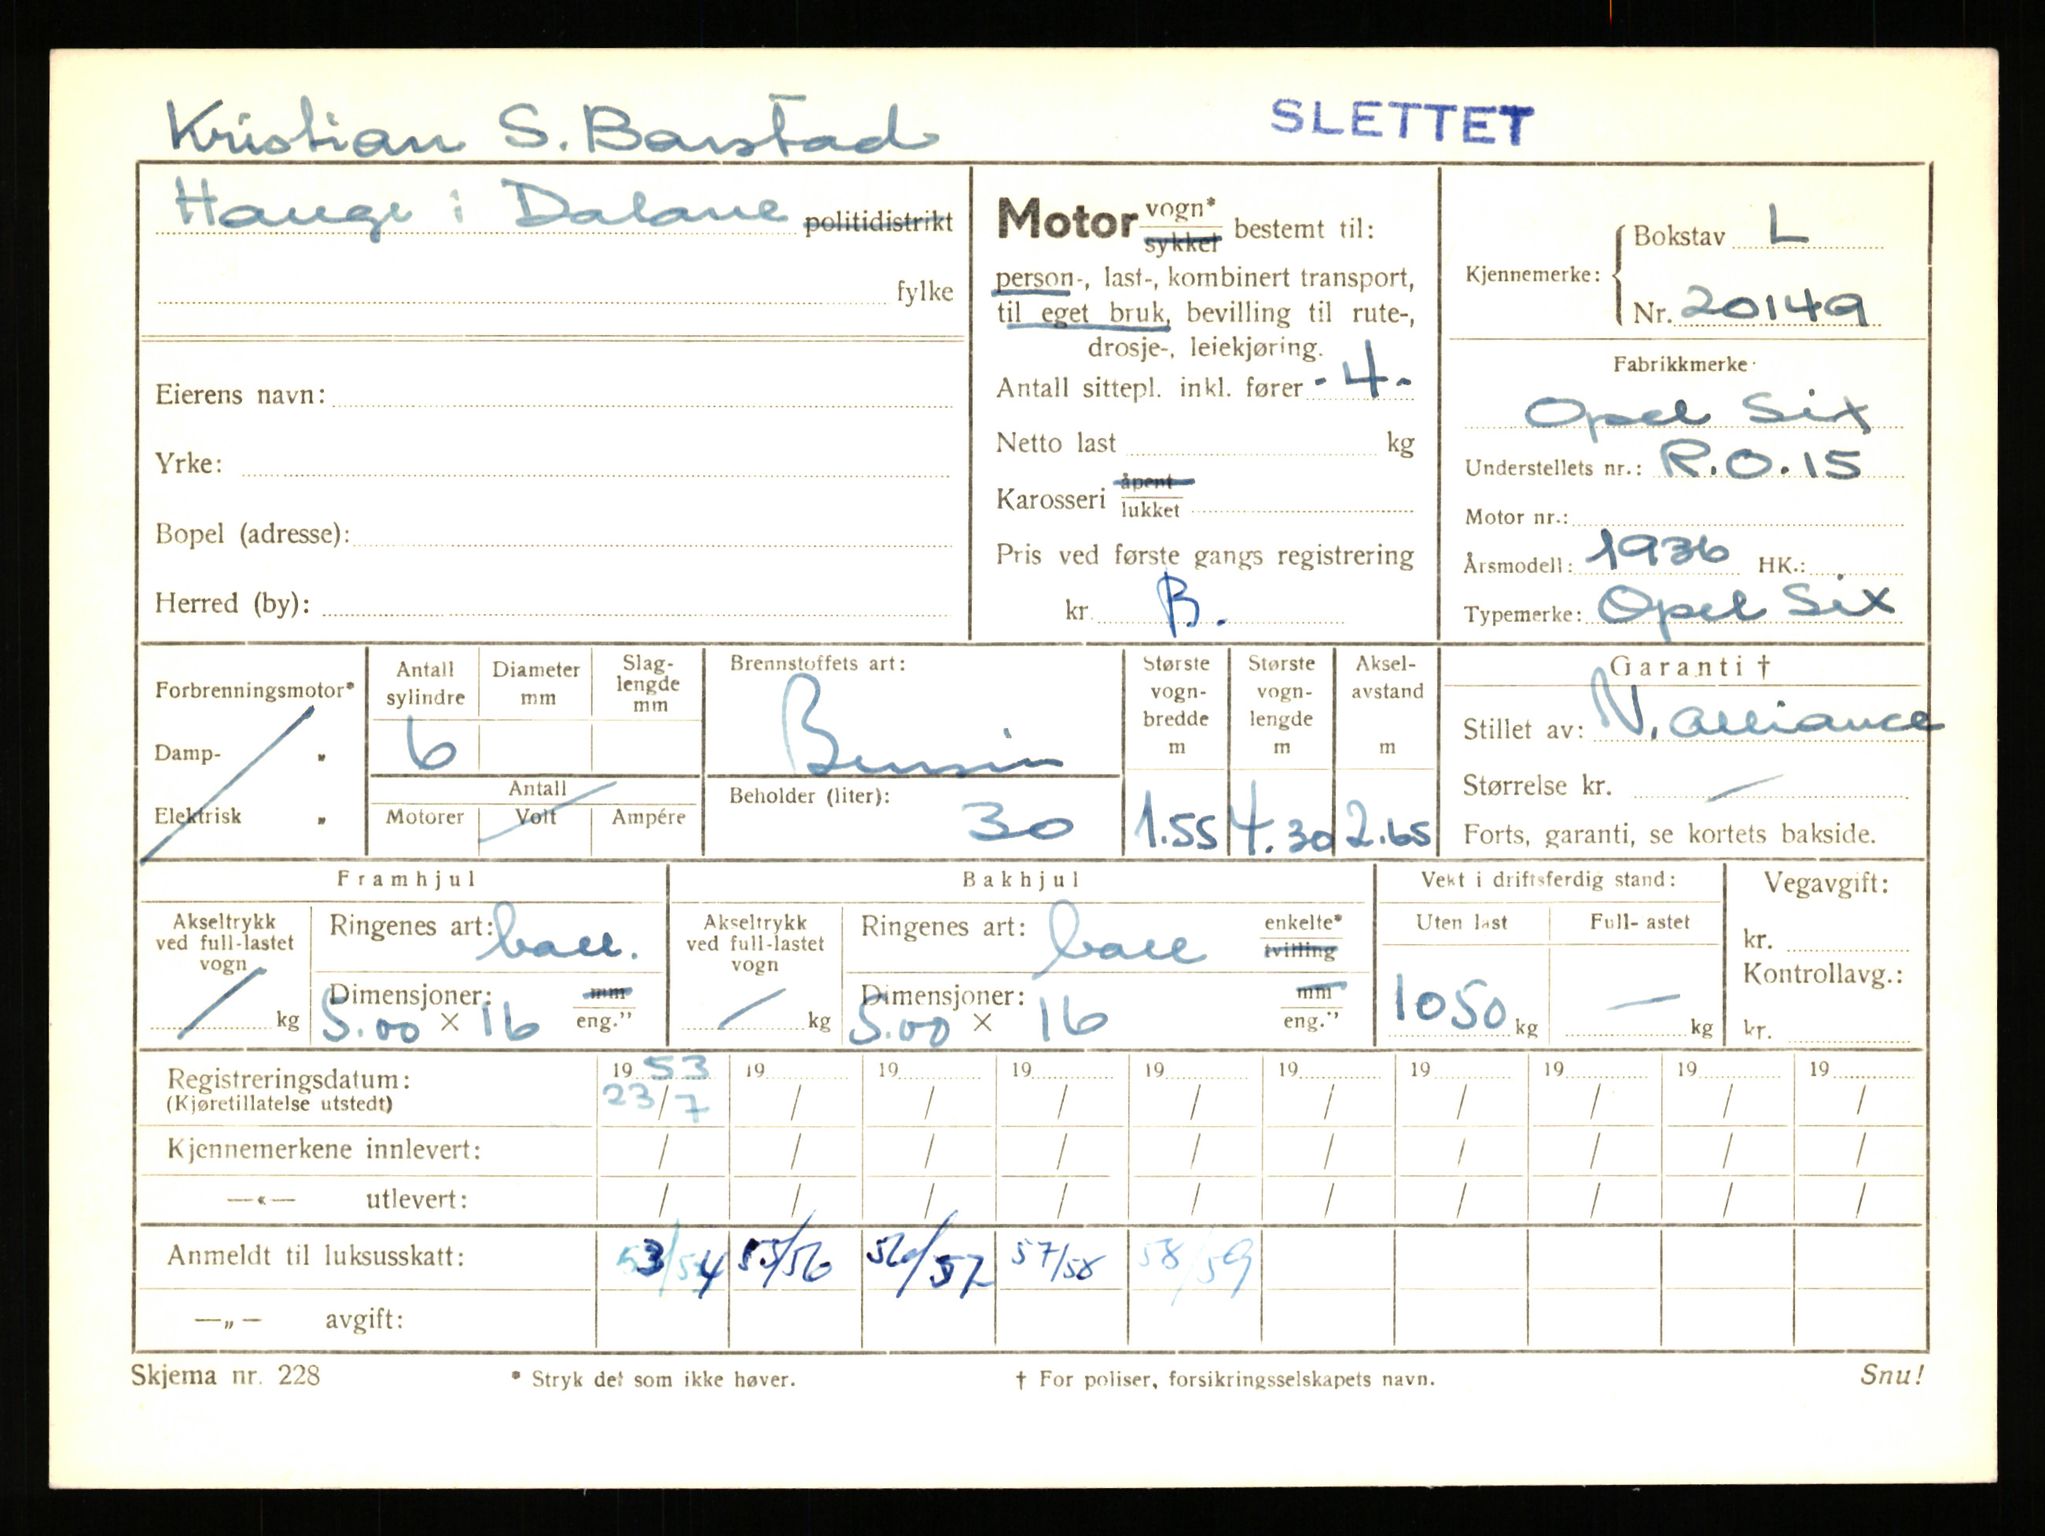 Kristian S. Barstad
SLETTET
Hauge i Dalane politidistrikt
fylke
Eierens navn:
Yrke:
Bopel (adresse):
Herred (by):
Motor vogn* sykkel bestemt til:
person-, last-, kombinert transport,
til eget bruk, bevilling til rute-,
drosje-, leiekjøring.
Antall sittepl. inkl. fører - 4 -
Netto last kg
Karosseri åpent lukket
Pris ved første gangs registrering
kr. B.
Kjennemerke: Bokstav L
Nr. 20149
Fabrikkmerke
Opel Six
Understellets nr.: R.O.15
Motor nr.:
Årsmodell: 1936 HK.:
Typemerke: Opel Six
Forbrenningsmotor*
Damp- "
Elektrisk "
Antall sylindre
6
Diameter mm
Slag-lengde mm
Antall
Motorer Volt Ampére
Brennstoffets art:
Bensin
Beholder (liter):
30
Største vogn-bredde m
1.55
Største vogn-lengde m
4.30
Aksel-avstand m
2.65
Garanti †
Stillet av: N. Alliance
Størrelse kr. —
Forts, garanti, se kortets bakside.
Framhjul
Akseltrykk ved full-lastet vogn
kg
Ringenes art: ball.
Dimensjoner: mm
5.00 × 16 eng."
Bakhjul
Akseltrykk ved full-lastet vogn
kg
Ringenes art: ball enkelte* tvilling
Dimensjoner: mm
5.00 × 16 eng."
Vekt i driftsferdig stand:
Uten last Full-lastet
1050 kg — kg
Vegavgift:
kr.
Kontrollavg.:
kr.
Registreringsdatum: 1953 19 19 19 19 19 19 19 19 19
(Kjøretillatelse utstedt) 23/7 / / / / / / / / /
Kjennemerkene innlevert: / / / / / / / / / /
—«— utlevert: / / / / / / / / / /
Anmeldt til luksusskatt: 53/54 55/56 56/57 57/58 58/59
—„— avgift:
Skjema nr. 228
* Stryk det som ikke høver.
† For poliser, forsikringsselskapets navn.
Snu!